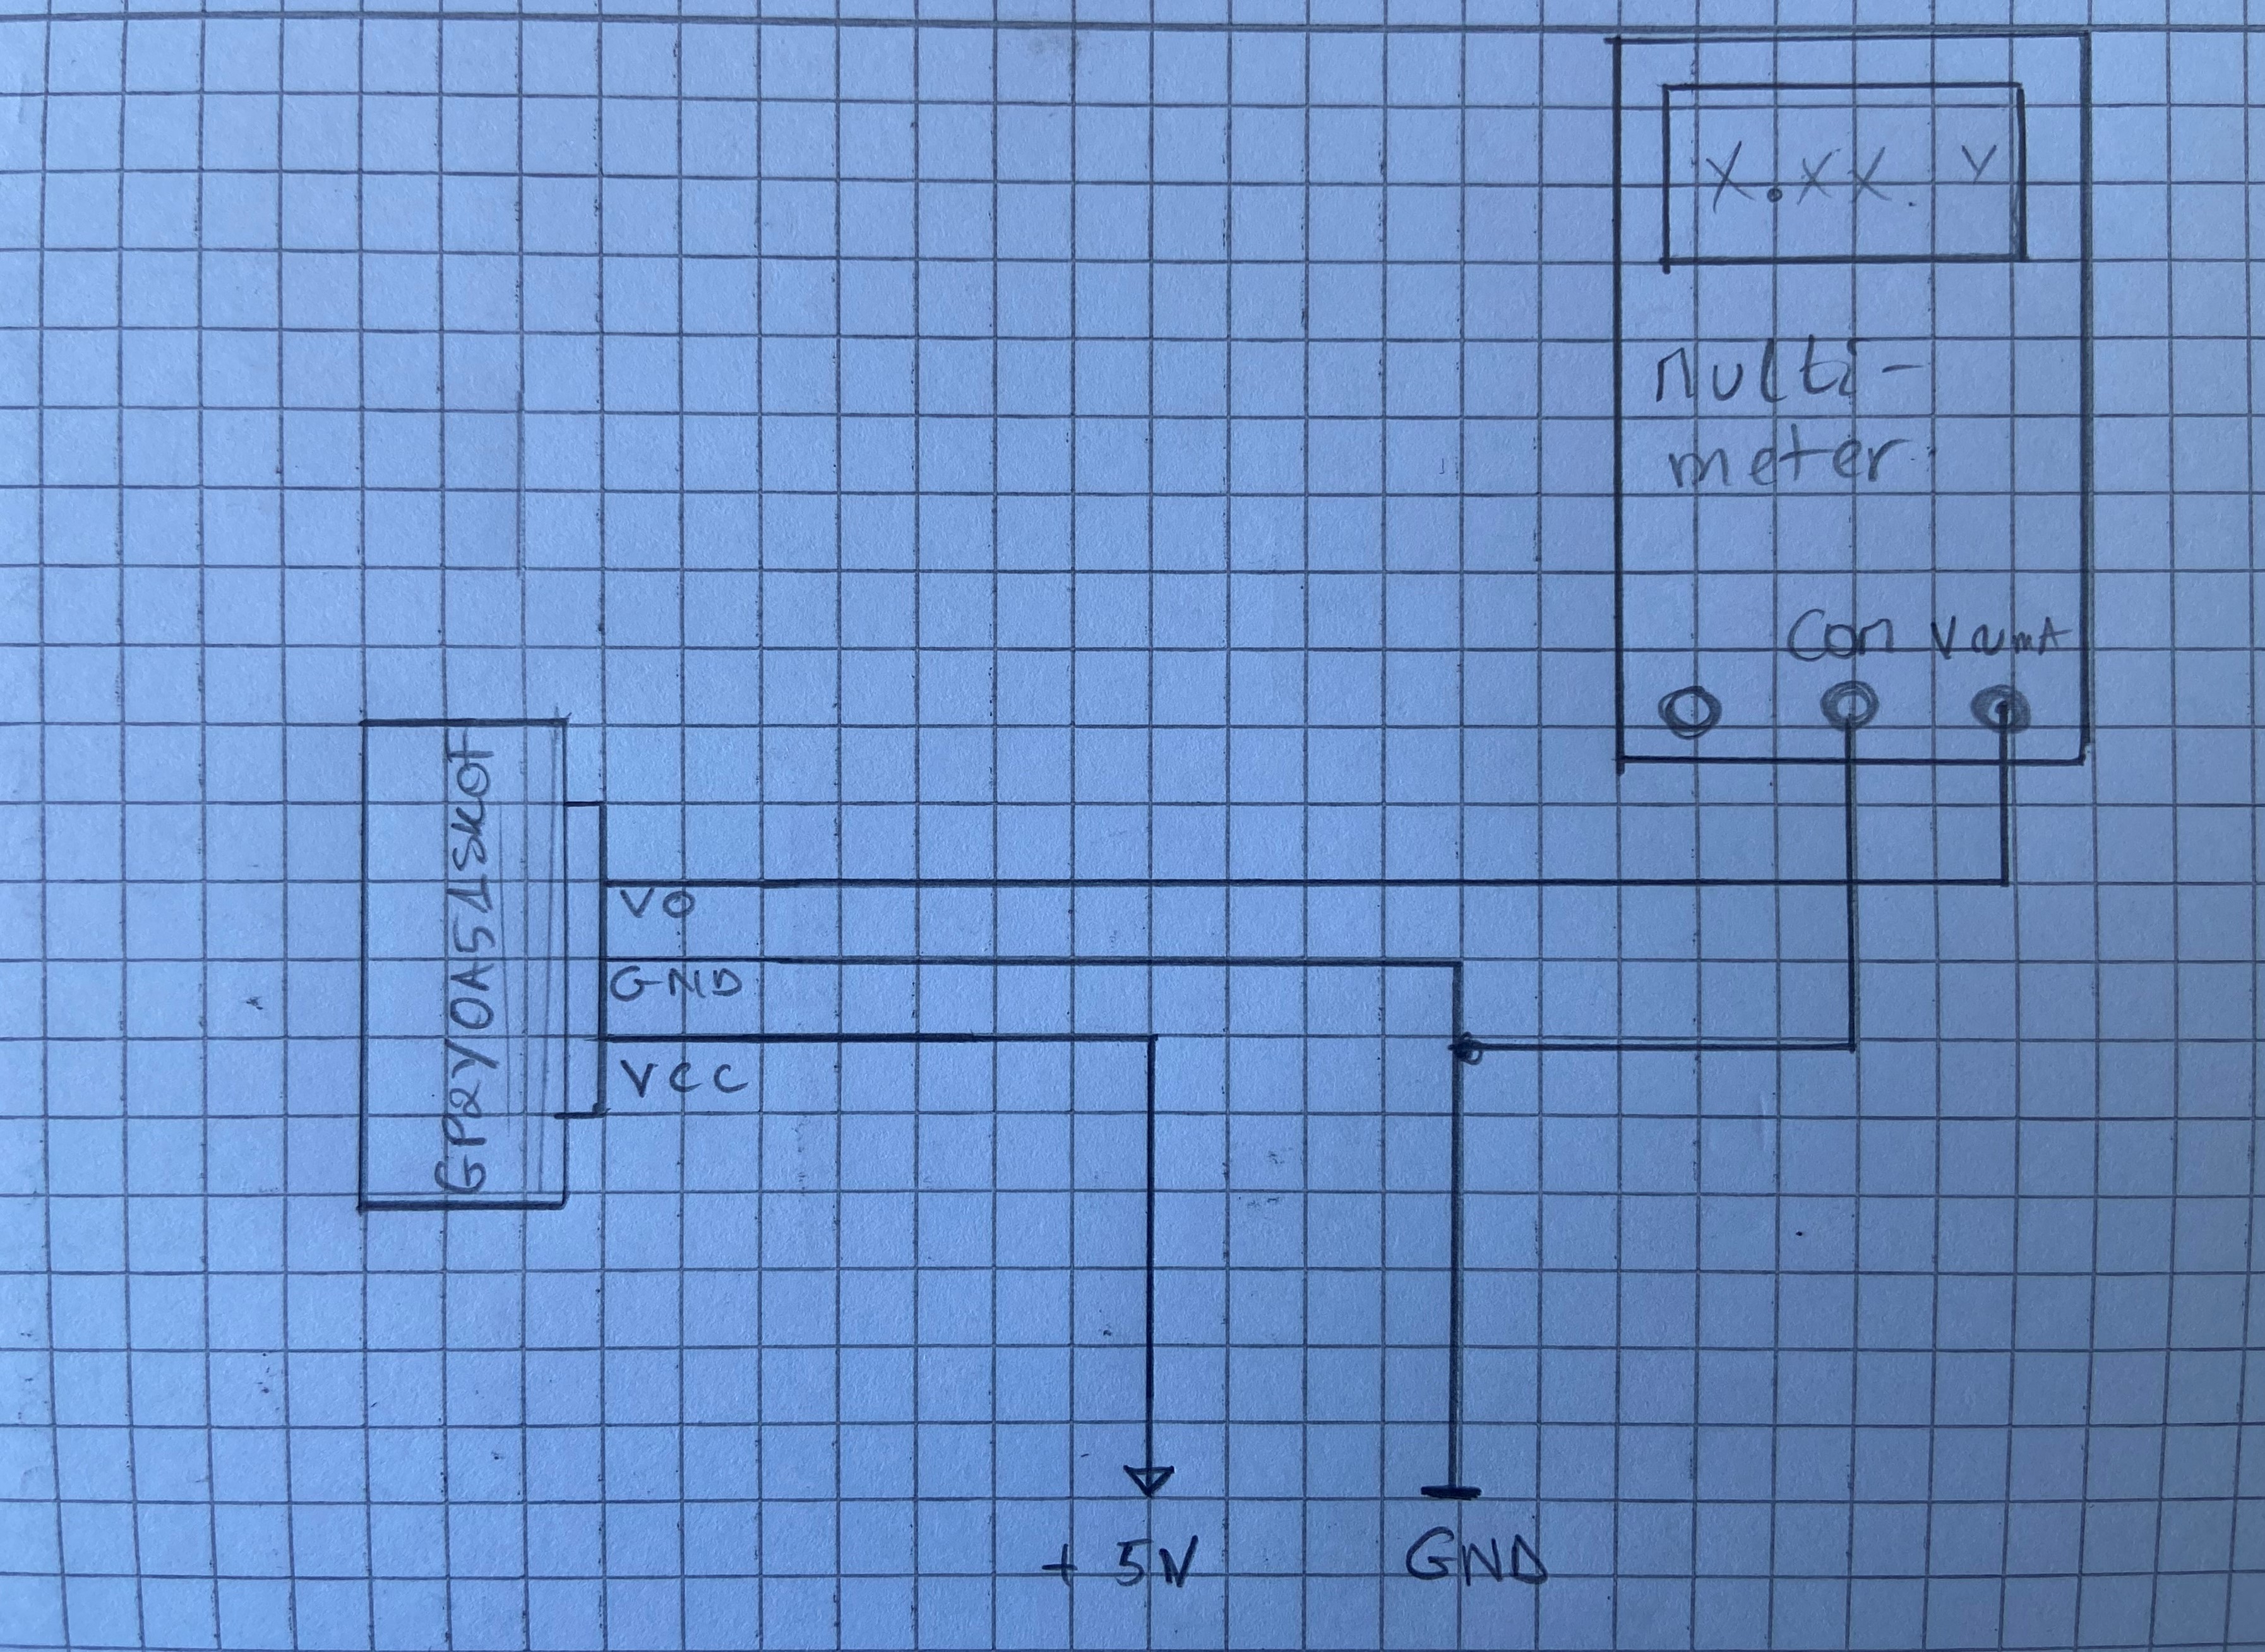 X.XX. V
Multi-
meter
Com VΩmA
GP2Y0A51SK0F
VO
GND
VCC
+ 5V
GND